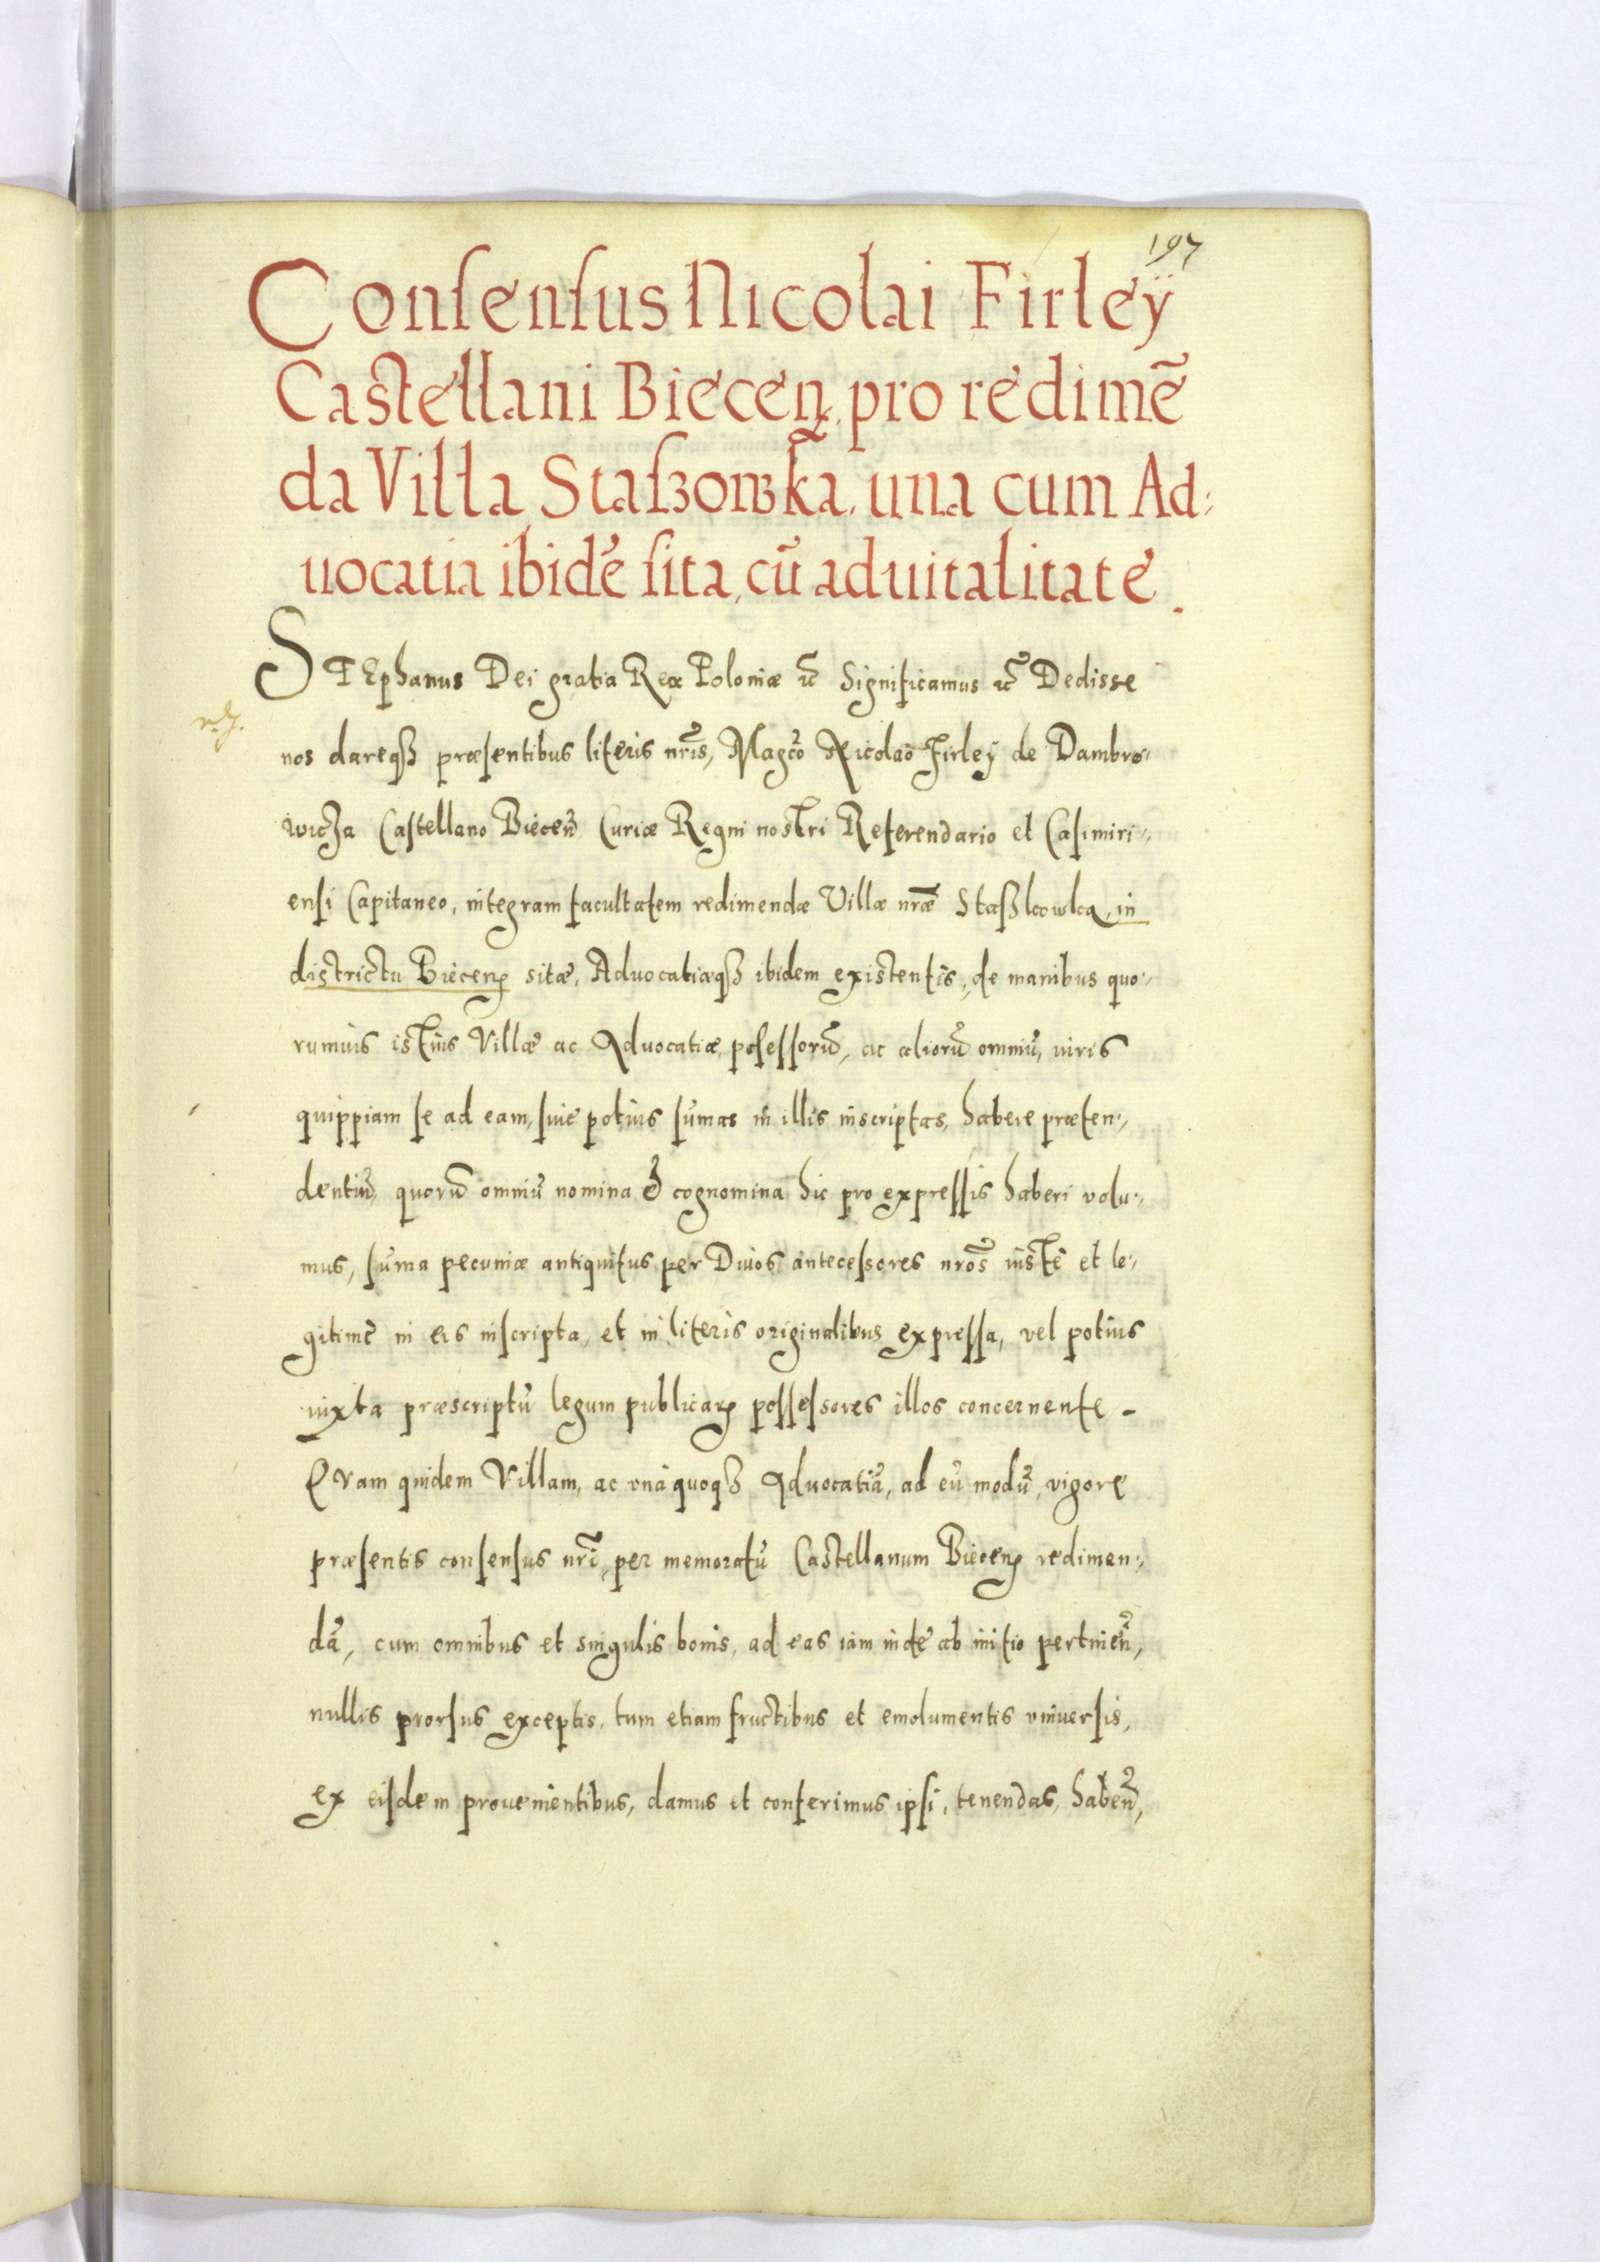 197
Consensus Nicolai Firleÿ
Castellani Biecen̄, pro redimē
da Villa Staszowska, una cum Ad:
uocatia ibidē sita, cū aduitalitate.
STEphanus Dei gratia Rex Poloniæ ꝛc̄ Significamus ꝛc̄ Dedisse
nos dareqꝫ præsentibus literis nr̄is, Magc̄o Nicolao Firleÿ de Dambro:
wicza Castellano Biecen̄ Curiæ Regni nostri Referendario et Casimiri:
ensi Capitaneo, integram facultatem redimendæ Villæ nr̄æ Staszkowka, in
districtu Biecen̄ sitæ, Aduocatiæqꝫ ibidem existentis, de manibus quo:
rumuis istius Villæ ac Aduocatiæ possessorū, ac aliorū omniū, iuris
quippiam se ad eam, siue potius sūmas in illis inscriptas, habere præten:
dentiū, quorū omniū nomina & cognomina hic pro expressis haberi volu:
mus, sūma pecuniæ antiquitus per Diuos antecessores nr̄os iustè et le:
gitimè in eis inscripta, et in literis originalibus expressa, vel potius
iuxta præscriptū legum publicarꝫ possessores illos concernente –
QVam quidem Villam, ac vnà quoqꝫ Aduocatiā, ad eū modū, vigore
præsentis consensus nr̄i, per memoratū Castellanum Biecen̄ redimen:
dā, cum omnibus et singulis bonis, ad eas iam inde ab initio pertinen̄,
nullis prorsus exceptis, tum etiam fructibus et emolumentis vniuersis,
ex eisdem prouenientibus, damus et conferimus ipsi, tenendas, haben̄,